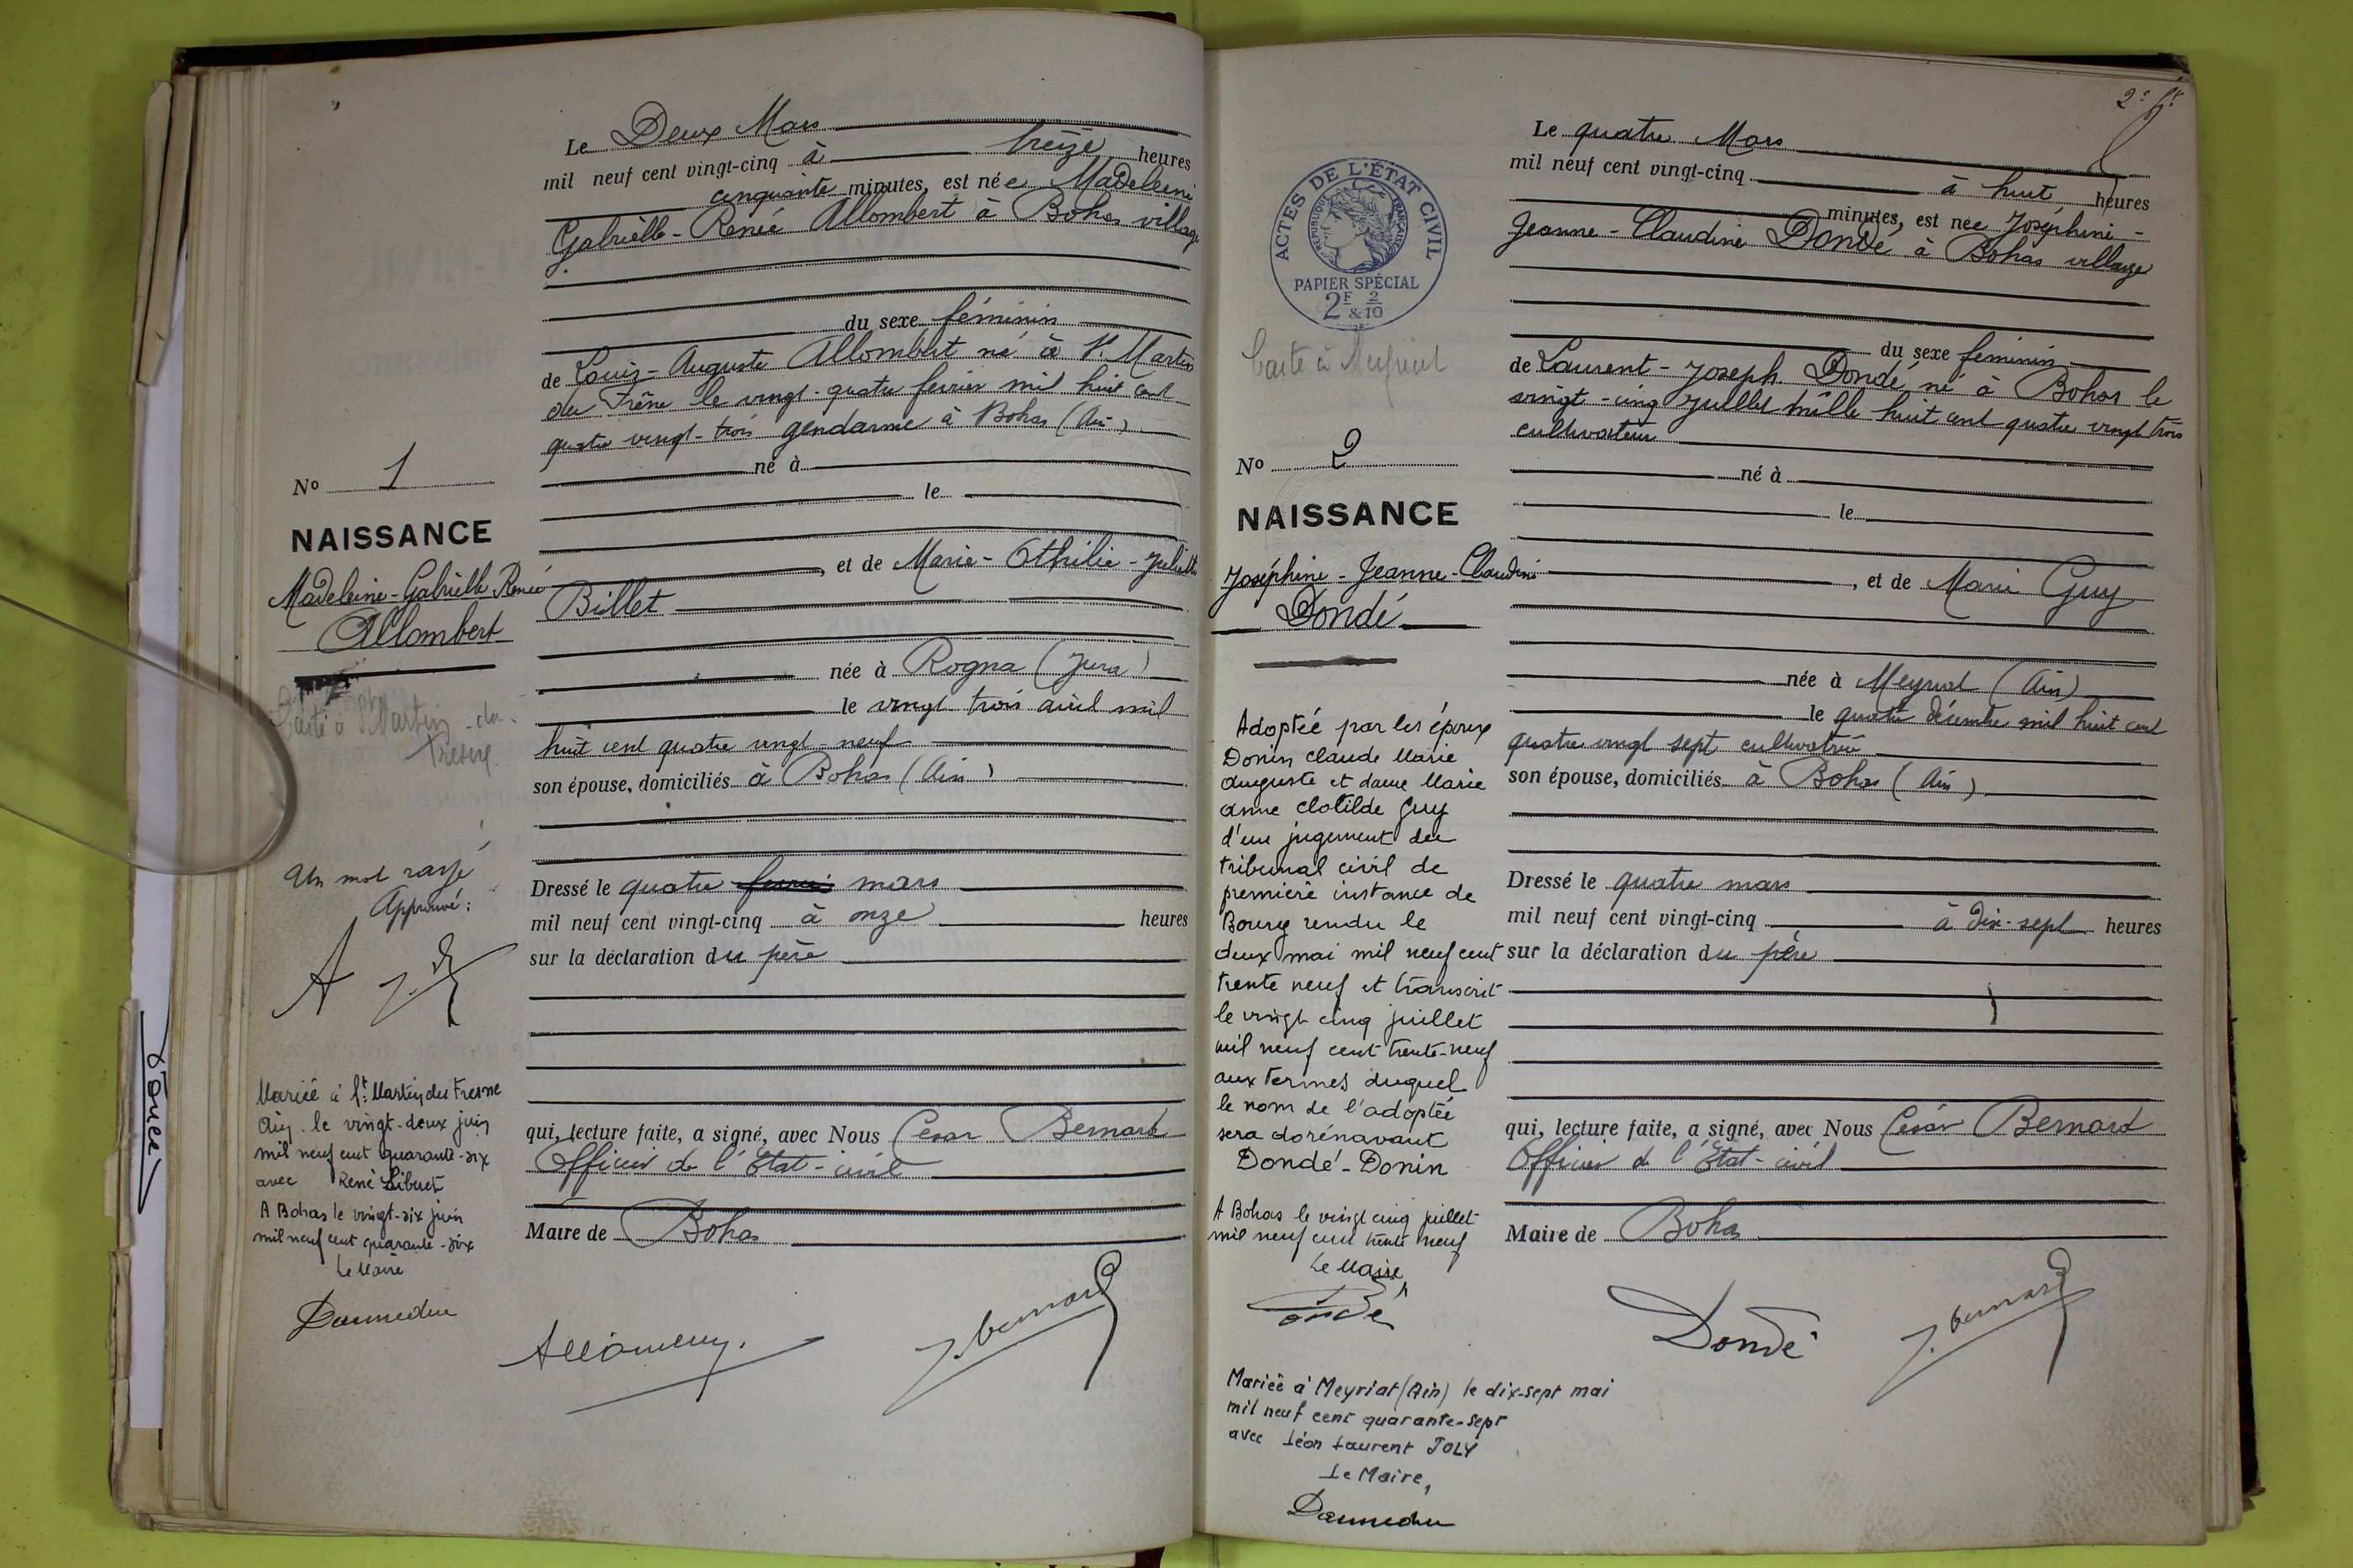 Le Deux Mars
mil neuf cent vingt-cinq à treize heures
cinquante minutes, est née Madeleine
Gabrielle-Renée Allombert à Bohas village
du sexe féminin
de Louis-Auguste Allombert né à St Martin
du Frêne le vingt-quatre fevrier mil huit cent
quatre vingt-trois gendarme à Bohas (Ain)
né à
le
et de Marie-Othilie-Juliette
Billet
née à Rogna (Jura)
le vingt trois avril mil
huit cent quatre vingt-neuf
son épouse, domiciliés à Bohas (Ain)
Dressé le quatre fevrier mars
mil neuf cent vingt-cinq à onze heures
sur la déclaration du père
qui, lecture faite, a signé, avec Nous César Bernard
Officier de l'Etat-civil
Maire de Bohas
J. Bernard
No 1
NAISSANCE
Madeleine-Gabrielle-Renée
Allombert
Carte à St Martin-du-
Fresne
Un mot rayé
Approuvé:
A J.B
Mariée à St Martin du Fresne
Ain le vingt-deux juin
mil neuf cent quarante-six
avec René Libuet
A Bohas le vingt-six juin
mil neuf cent quarante-six
Le Maire
2e ft
Le quatre Mars
mil neuf cent vingt-cinq à huit heures
minutes, est née Joséphine-
Jeanne-Claudine Dondé à Bohas village
du sexe feminin
de Laurent-Joseph Dondé né à Bohas le
vingt-cinq Juillet mille huit cent quatre vingt trois
cultivateur
né à
le
, et de Marie Guy
née à Meyriat (Ain)
le quatre décembre mil huit cent
quatre vingt sept cultivatrice
son épouse, domiciliés à Bohas (Ain)
Dressé le quatre mars
mil neuf cent vingt-cinq à dix-sept heures
sur la déclaration du père
qui, lecture faite, a signé, avec Nous César Bernard
Officier de l'Etat-civil
Maire de Bohas
Dondé J. Bernard
ACTES DE L'ÉTAT CIVIL
RÉPUBLIQUE FRANÇAISE
PAPIER SPÉCIAL
2F & 2/10
Carte à Meyriat
No 2
NAISSANCE
Joséphine-Jeanne-Claudine
Dondé
Adoptée par les époux
Donin Claude Marie
Auguste et dame Marie
Anne Clotilde Guy
d'un jugement du
tribunal civil de
première instance de
Bourg rendu le
deux mai mil neuf cent
trente neuf et transcrit
le vingt cinq juillet
mil neuf cent trente-neuf
aux termes duquel
le nom de l'adoptée
sera dorénavant
Dondé-Donin
A Bohas le vingt cinq juillet
mil neuf cent trente neuf
Le Maire
Dondé
Mariée à Meyriat (Ain) le dix-sept mai
mil neuf cent quarante-sept
avec Léon Laurent JOLY
Le Maire,